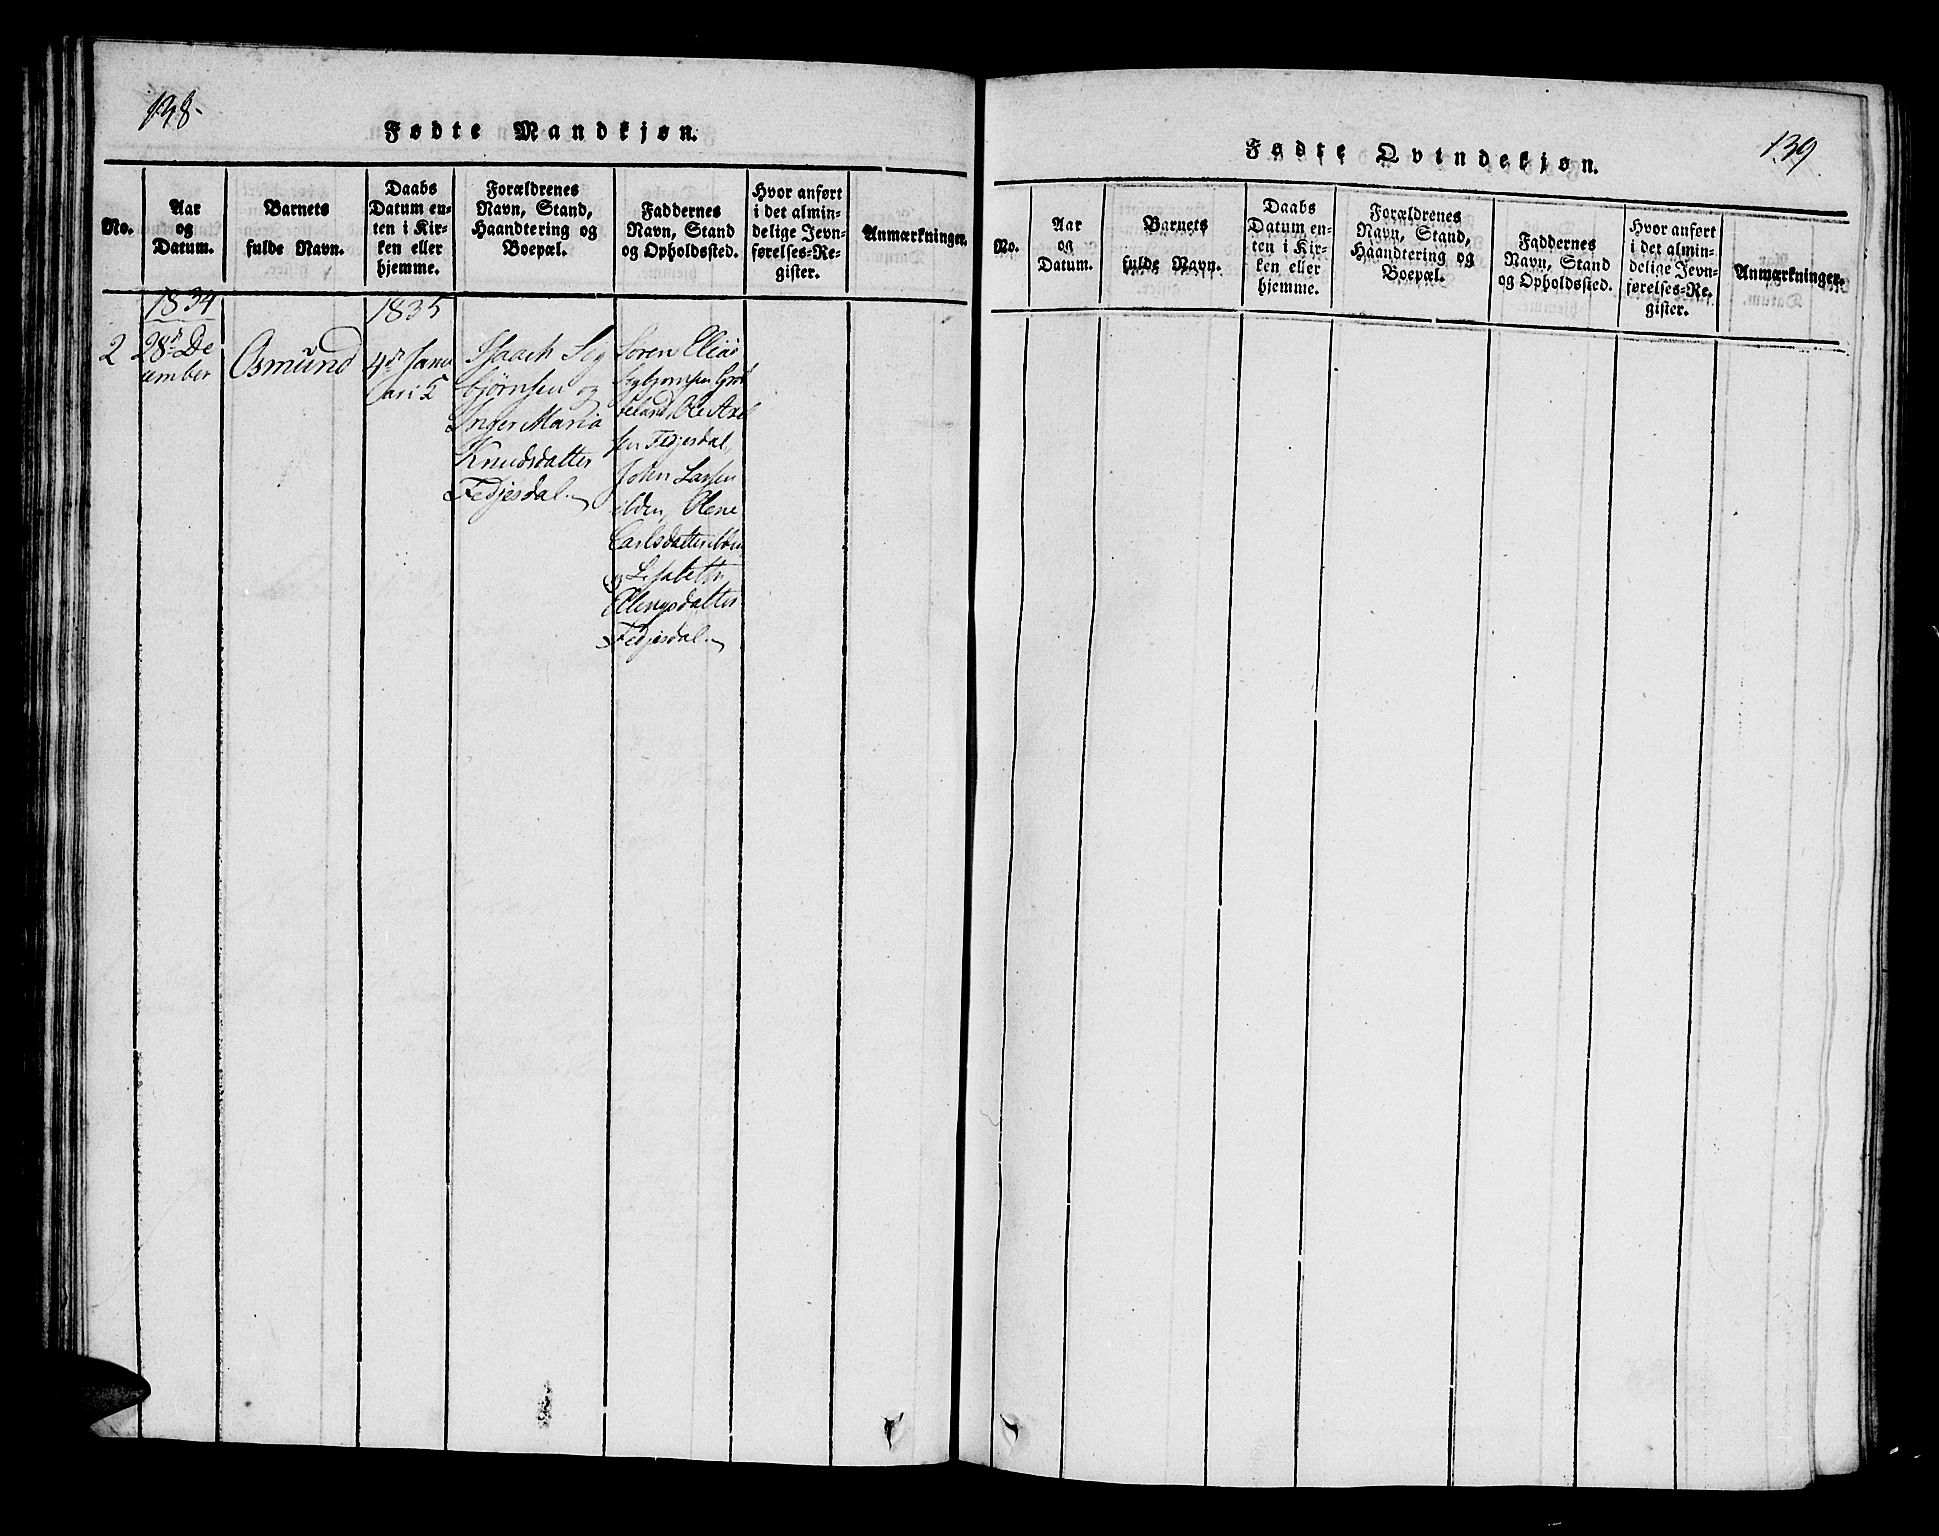 138-
Fødte Mandkjøn.
No.
Aar
og
Datum.
Barnets
fulde Navn.
Daabs
Datum en-
ten i Kir-
ken eller
hjemme.
Forældrenes
Navn, Stand,
Haandtering og
Boepæl.
Faddernes
Navn, Stand
og Opholdssted.
Hvor anført
i det almin-
delige Jevn-
førelses-Re-
gister.
Anmærkninger.
1834
2
28de De
cember
Osmund
1835
4de Janu
ari
Isaach Seg
bjørnsen og
Inger Maria
Knudsdatter
Fedjesdal.
Soren Elias
Segbjornsen
Ole Axel
sen Fedjesdal,
John Larsen
Olene
Carlsdatter
og Lisabeth
Ellengsdatter
Fedjesdal.
139
Fødte Qvindekjøn.
No.
Aar
og
Datum.
Barnets
fulde Navn.
Daabs
Datum en-
ten i Kir-
ken eller
hjemme.
Forældrenes
Navn, Stand,
Haandtering og
Boepæl.
Faddernes
Navn, Stand
og Opholdssted.
Hvor anført
i det almin-
delige Jevn-
førelses-Re-
gister.
Anmærkninger.